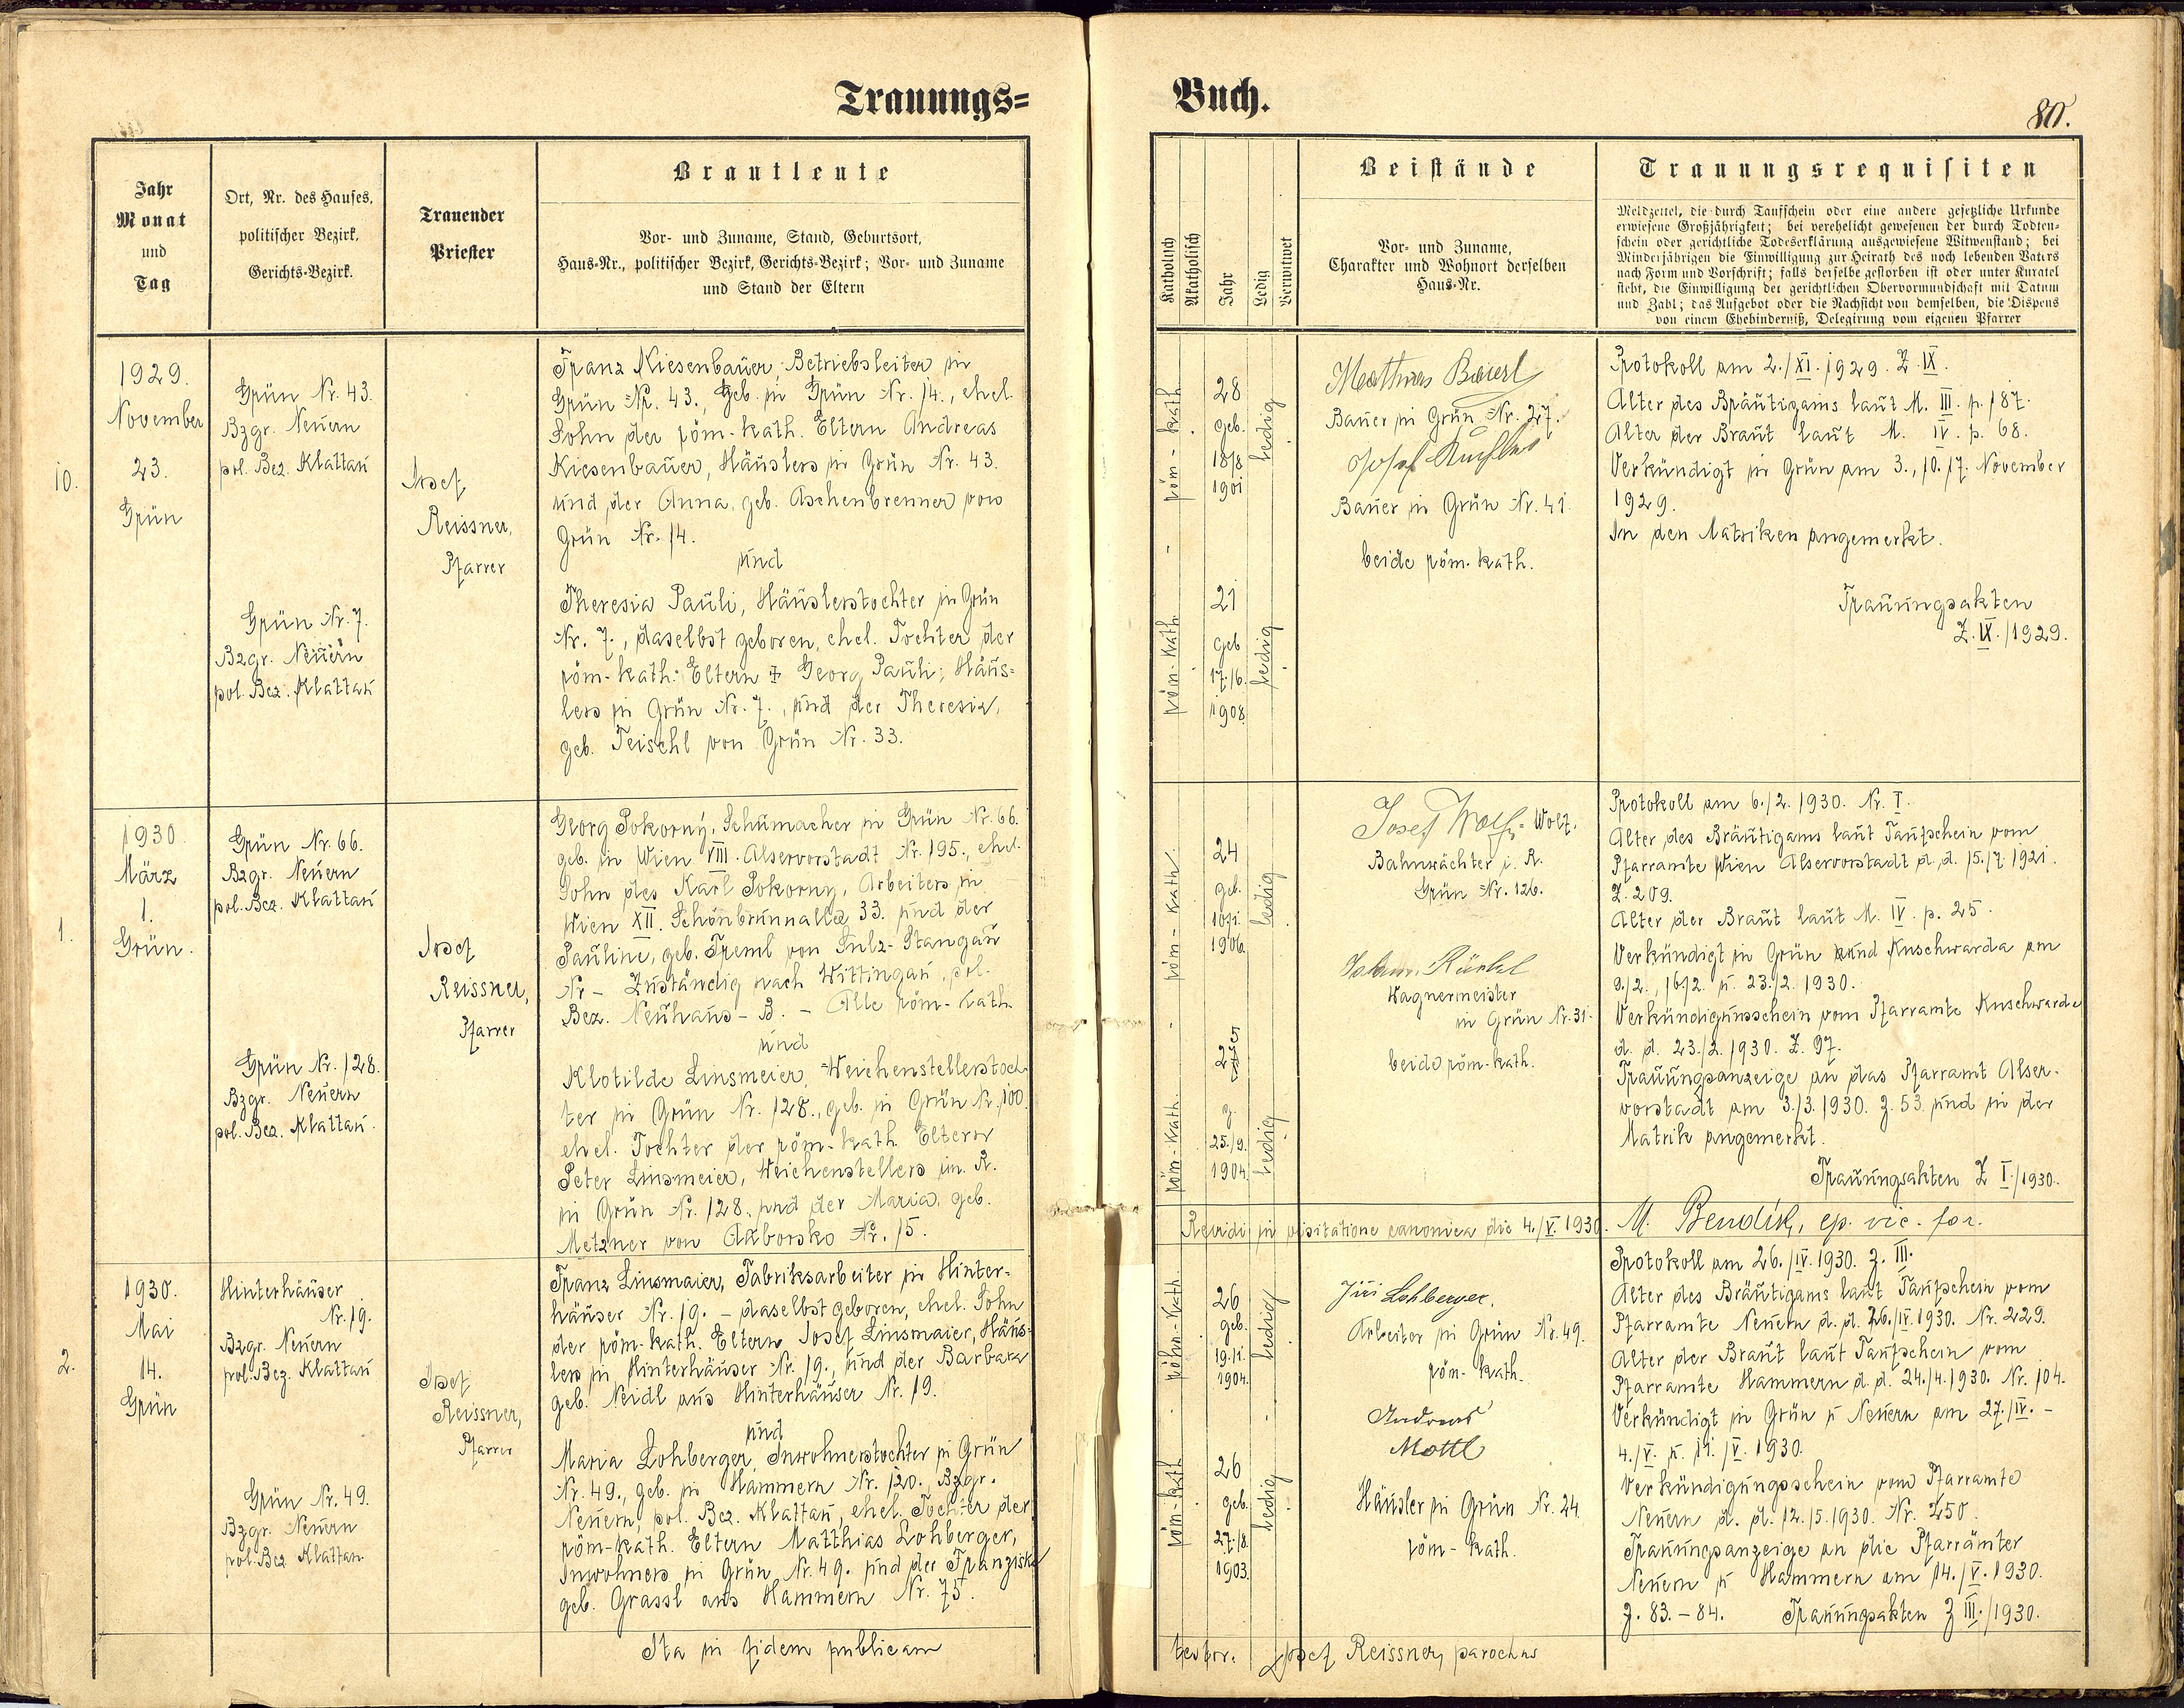 Trauungs=
Jahr
Monat
und
Tag
Ort, Nr. des Hauses,
politischer Bezirk,
Gerichts-Bezirk.
Trauender
Priester
Brautleute
Vor- und Zuname, Stand, Geburtsort,
Haus-Nr., politischer Bezirk, Gerichts-Bezirk; Vor- und Zuname
und Stand der Eltern
10.
1929.
November
23.
Grün
Grün Nr. 43.
Bzgr. Neuern
pol. Bez. Klattau
Grün Nr. 7.
Bzgr. Neuern
pol. Bez. Klattau
Josef
Reissner,
Pfarrer
Franz Kiesenbauer, Betriebsleiter in
Grün Nr. 43., geb. in Grün Nr. 14., ehel.
Sohn der röm.-kath. Eltern Andreas
Kiesenbauer, Häuslers in Grün Nr. 43.
und der Anna, geb. Aschenbrenner von
Grün Nr. 14.
und
Theresia Pauli, Häuslerstochter in Grün
Nr. 7., daselbst geboren, ehel. Tochter der
röm.-kath. Eltern † Georg Pauli, Häus=
lers in Grün Nr. 7., und der Theresia,
geb. Teischl von Grün Nr. 33.
1.
1930.
März
1.
Grün.
Grün Nr. 66.
Bzgr. Neuern
pol. Bez. Klattau
Grün Nr. 128.
Bzgr. Neuern
pol. Bez. Klattau.
Josef
Reissner,
Pfarrer
Georg Pokorný, Schumacher in Grün Nr. 66.
geb. in Wien VIII. Alservorstadt Nr. 195., ehel.
Sohn des Karl Pokorny, Arbeiters in
Wien XII. Schönbrunnallee 33. und der
Pauline, geb. Treml von Sulz-Stangau
Nr - Zuständig nach Wittingau, pol.
Bez. Neuhaus - B. - Alle röm.-kath.
und
Klotilde Linsmeier, Weichenstellerstoch-
ter in Grün Nr. 128., geb. in Grün Nr. 100.
ehel. Tochter der röm.-kath. Eltern
Peter Linsmeier, Weichenstellers in R.
in Grün Nr. 128. und der Maria, geb.
Metzner von Nr. 15.
2.
1930.
Mai
14.
Grün
Hinterhäuser
Nr. 19.
Bzgr. Neuern
pol. Bez. Klattau
Grün Nr. 49.
Bzgr. Neuern
pol. Bez. Klattau.
Josef
Reissner,
Pfarrer
Franz Linsmaier, Fabriksarbeiter in Hinter=
häuser Nr. 19. - daselbst geboren, ehel. Sohn
der röm.-kath. Eltern Josef Linsmaier, Häus-
lers in Hinterhäuser Nr. 19., und der Barbara
geb. Neidl aus Hinterhäuser Nr. 19.
und
Maria Lohberger, Inwohnerstochter in Grün
Nr. 49., geb. in Hammern Nr. 120., Bzgr.
Neuern, pol. Bez. Klattau, ehel. Tochter der
röm-kath. Eltern Matthias Lohberger,
Inwohners in Grün Nr. 49. und der Franziska
geb. Grassl aus Hammern Nr. 75.
Ita in fidem publicam
Buch.
80.
Katholisch
Akatholisch
Jahr
Ledig
Verwitwet
Beistände
Vor- und Zuname,
Charakter und Wohnort derselben
Haus-Nr.
Trauungsrequisiten
Meldzettel, die durch Taufschein oder eine andere gesetzliche Urkunde
erwiesene Großjährigkeit; bei verehelicht gewesenen der durch Todten-
schein oder gerichtliche Todeserklärung ausgewiesene Witwenstand; bei
Minderjährigen die Einwilligung zur Heirath des noch lebenden Vaters
nach Form und Vorschrift; falls derselbe gestorben ist oder unter Kuratel
steht, die Einwilligung der gerichtlichen Obervormundschaft mit Datum
und Zahl; das Aufgebot oder die Nachsicht von demselben, die Dispens
von einem Ehehinderniß, Delegirung vom eigenen Pfarrer
röm-kath
28
geb.
18/8.
1901
ledig
röm-kath.
21
geb
17./6.
1908.
ledig
Mathias Baierl
Bauer in Grün Nr. 27.
Josef
Bauer in Grün Nr. 41.
beide röm.-kath.
Protokoll am 2./XI. 1929. Z. IX.
Alter des Bräutigams laut M. III. p. 187.
Alter der Braut laut M. IV. p. 68.
Verkündigt in Grün am 3., 10. 17. November
1929.
In den Matriken angemerkt.
Trauungsakten
Z. IX./1929.
röm-kath.
24
geb.
10/1.
1906.
ledig
röm-kath.
25
g.
25./9.
1904.
ledig
Josef Wolf - Wolf.
Bahnwächter i. R.
Grün Nr. 126.
Johann
Wagnermeister
in Grün Nr. 31.
beide röm.-kath.
Protokoll am 6./2. 1930. Nr. I.
Alter des Bräutigams laut Taufschein vom
Pfarramte Wien Alservorstadt d. d. 15./7. 1921.
Z. 209.
Alter der Braut laut M. IV. p. 25.
Verkündigt in Grün und Kuschwarda am
9./2., 16/2. u. 23./2. 1930.
Verkündigunsschein vom Pfarramte Kuschwarda
d. d. 23./2. 1930. Z. 97.
Trauungsanzeige an das Pfarramt Alser-
vorstadt am 3./3. 1930. Z. 53 und in der
Matrik angemerkt.
Trauungsakten Z I./1930.
Revidi in visitatione canonica die 4./V. 1930. M. Bendík, ep. vic. for.
röhm-kath.
26
geb.
19.11.
1904.
ledig
röm-kath
26
geb.
27./8.
1903.
ledig
Jiří Lohberger.
Arbeiter in Grün Nr. 49.
röm-kath.
Andreas
Mottl
Häusler in Grün Nr. 24.
röm-kath.
Protokoll am 26./IV. 1930. Z. III.
Alter des Bräutigams laut Taufschein vom
Pfarramte Neuern d. d. 26./IV. 1930. Nr. 229.
Alter der Braut laut Taufschein vom
Pfarramte Hammern d. d. 24./4. 1930. Nr. 104.
Verkündigt in Grün u Neuern am 27./IV. -
4./V. u. 11./V. 1930.
Verkündigungsschein vom Pfarramte
Neuern d. d. 12./5. 1930. Nr. 250.
Trauungsanzeige an die Pfarrämter
Neuern u Hammern am 14./V. 1930.
Z. 83. - 84. Trauungsakten Z III./1930.
testor. Josef Reissner, parochus